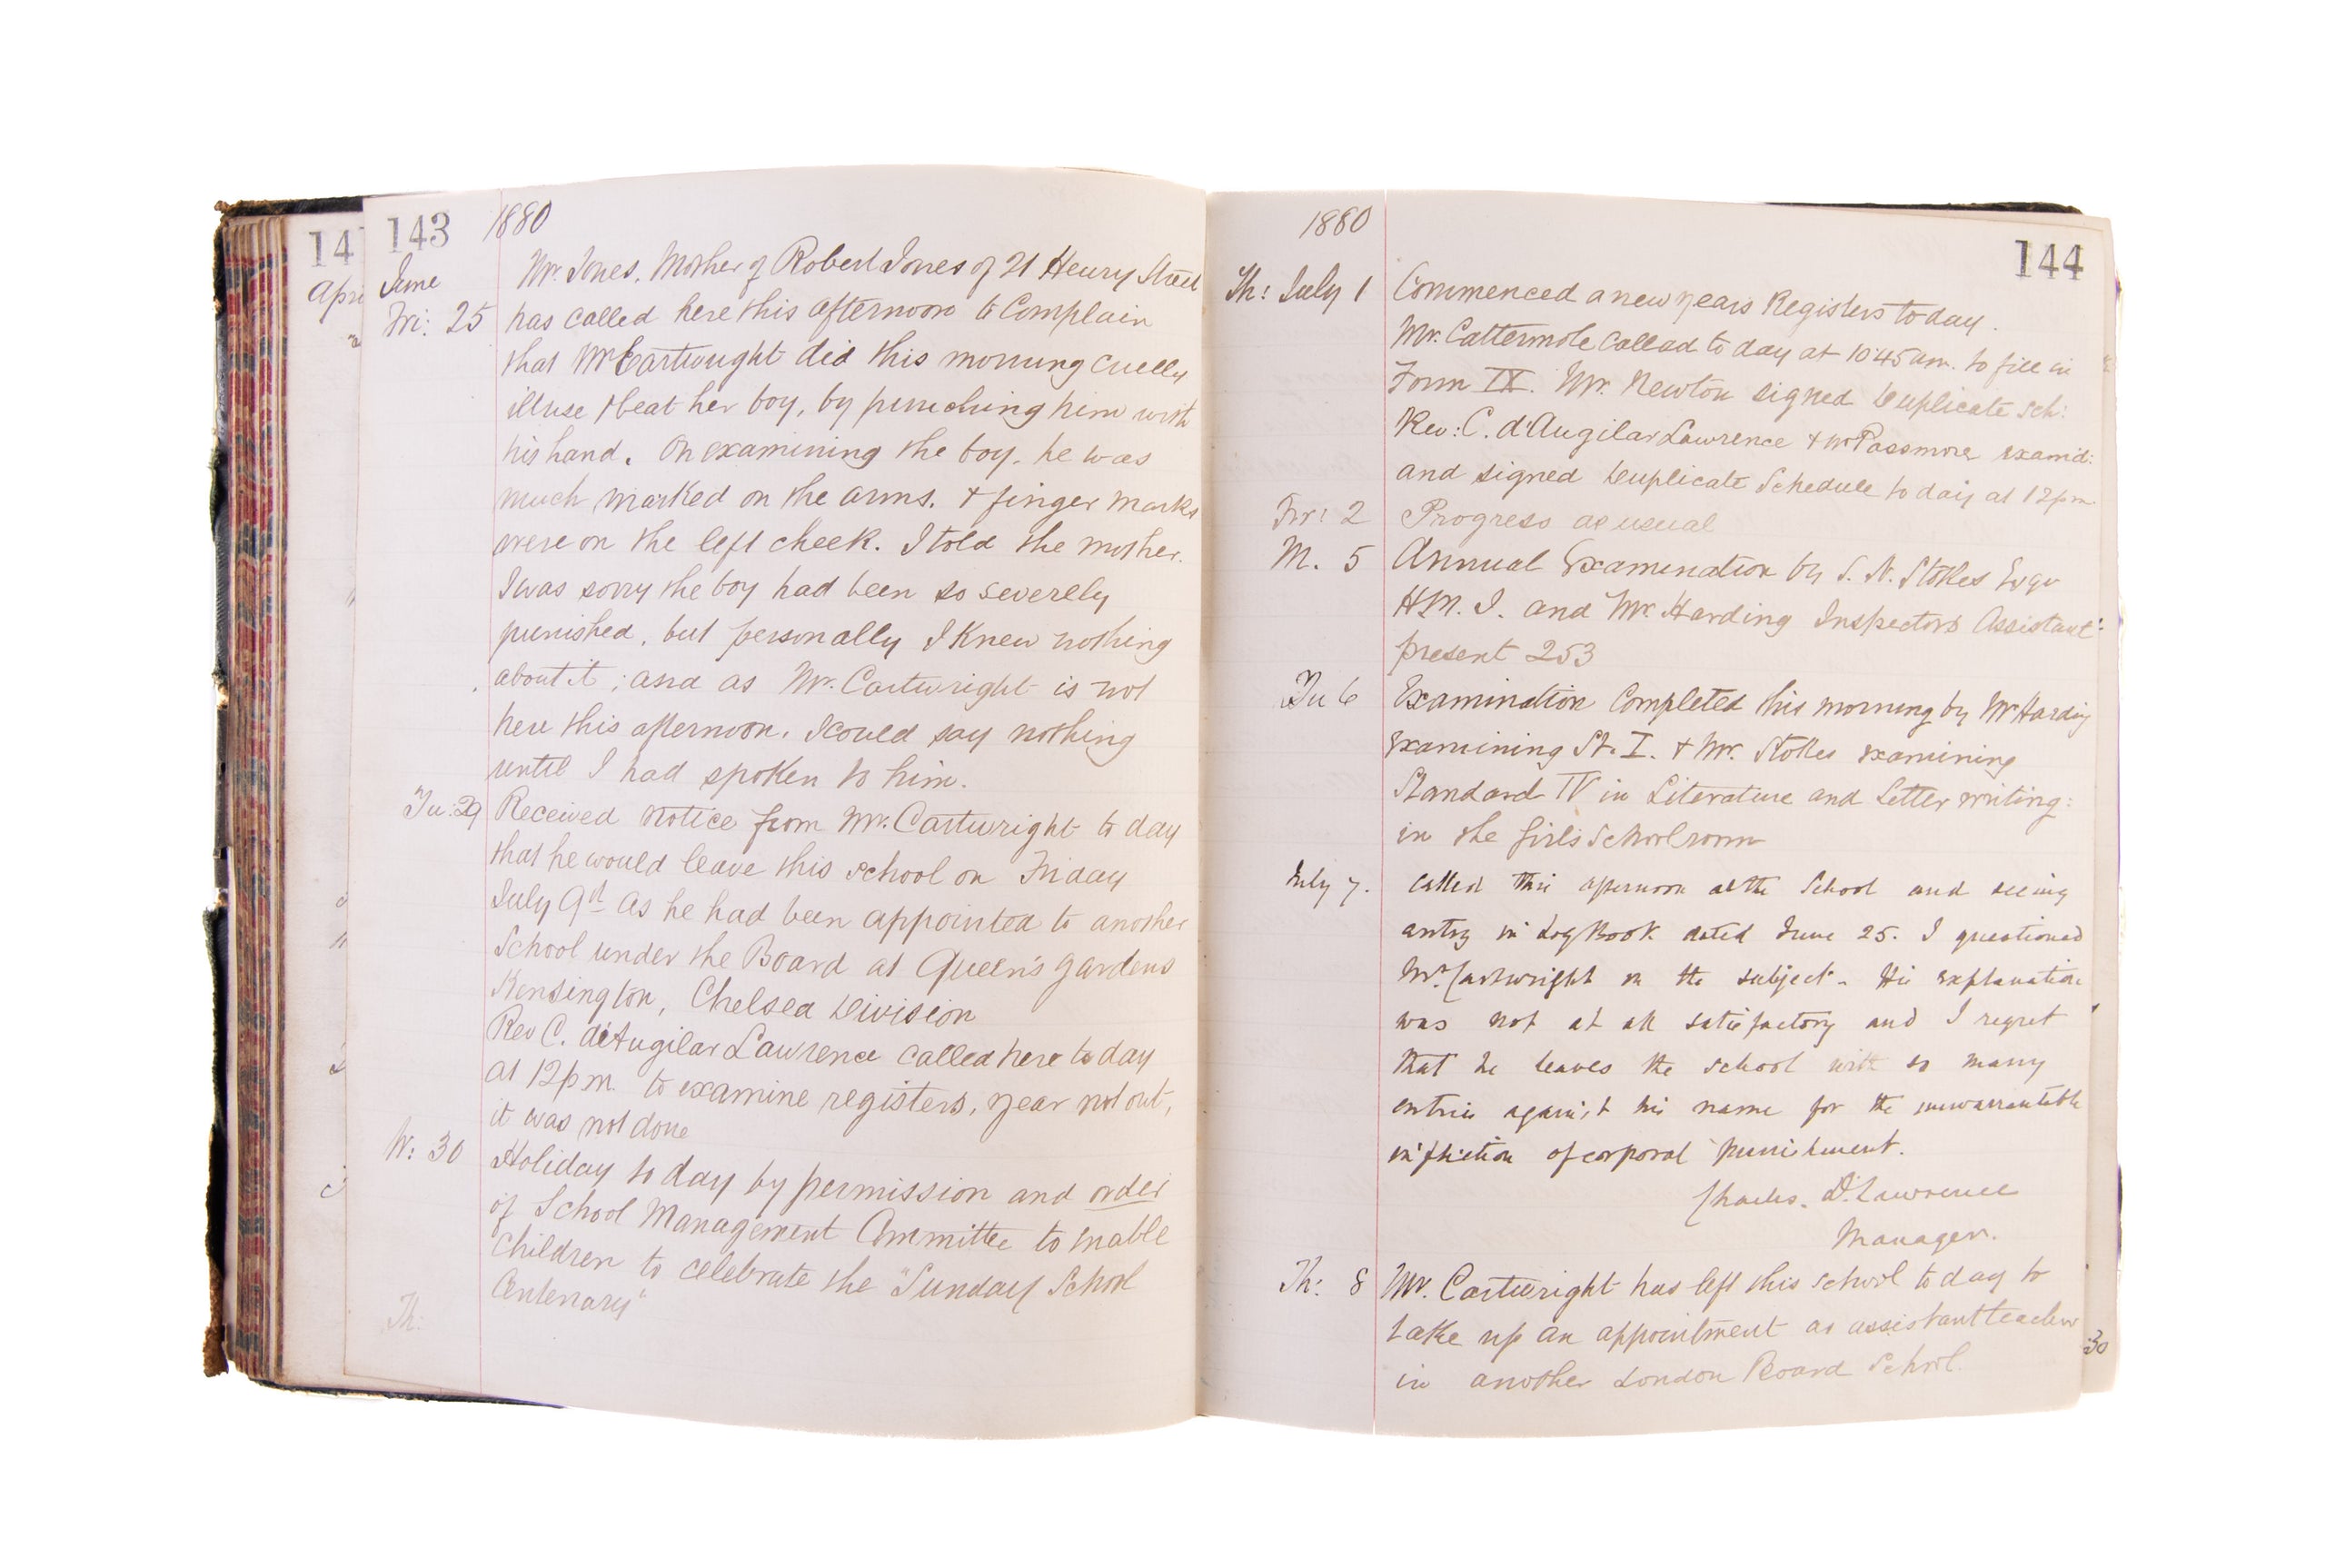 14
Apri
143
1880
June
Mr. Jones. Mother of Robert Jones of 21 Henry Street
Fri: 25 has called here this afternoon to Complain
that Mr Cartwright did this morning cruelly
illuse & beat her boy, by punching him with
his hand. On examining the boy, he was
much marked on the arms. & finger marks
were on the left cheek. I told the mother.
I was sorry the boy had been so severely
punished, but personally I knew nothing
about it; and as Mr. Cartwright is not
here this afternoon. I could say nothing
until I had spoken to him.
Tu: 29 Received notice from Mr. Cartwright to day
that he would leave this school on Friday
July 9th as he had been appointed to another
School under the Board at Queen's Gardens
Kensington, Chelsea Division
Rev C. d'Augilar Lawrence called here to day
at 12pm. to examine registers, year not out,
it was not done
W: 30 Holiday to day by permission and order
of School Management Committee to enable
Children to celebrate the "Sunday School
Centenary"
Th:
1880
144
Th: July 1 Commenced a new years Registers to day.
Mr. Cattermole Called to day at 10.45 am. to fill in
Form IX. Mr. Newton signed Duplicate Sch:
Rev: C. d'Augilar Lawrence & Mr Passmore examd:
and signed Duplicate Schedule to day at 12pm
Fr: 2 Progress as usual
M. 5 Annual Examination by S. N. Stokes Esqr
H.M. I. and Mr. Harding Inspectors Assistant:
present 253
Tu 6 Examination Completed this morning by Mr Harding
examining St. I. & Mr. Stokes examining
Standard IV in Literature and Letter writing:
in the girls Schoolroom
July 7. Called this afternoon at the School and seeing
entry in Log Book dated June 25. I questioned
Mr. Cartwright on the subject. His explanation
was not at all satisfactory and I regret
that he leaves the school with so many
entries against his name for the unwarrantable
infliction of corporal punishment.
Charles. D. Lawrence
Manager.
Th: 8 Mr. Cartwright has left this school to day to
take up an appointment as assistant teacher
in another London Board School.
30